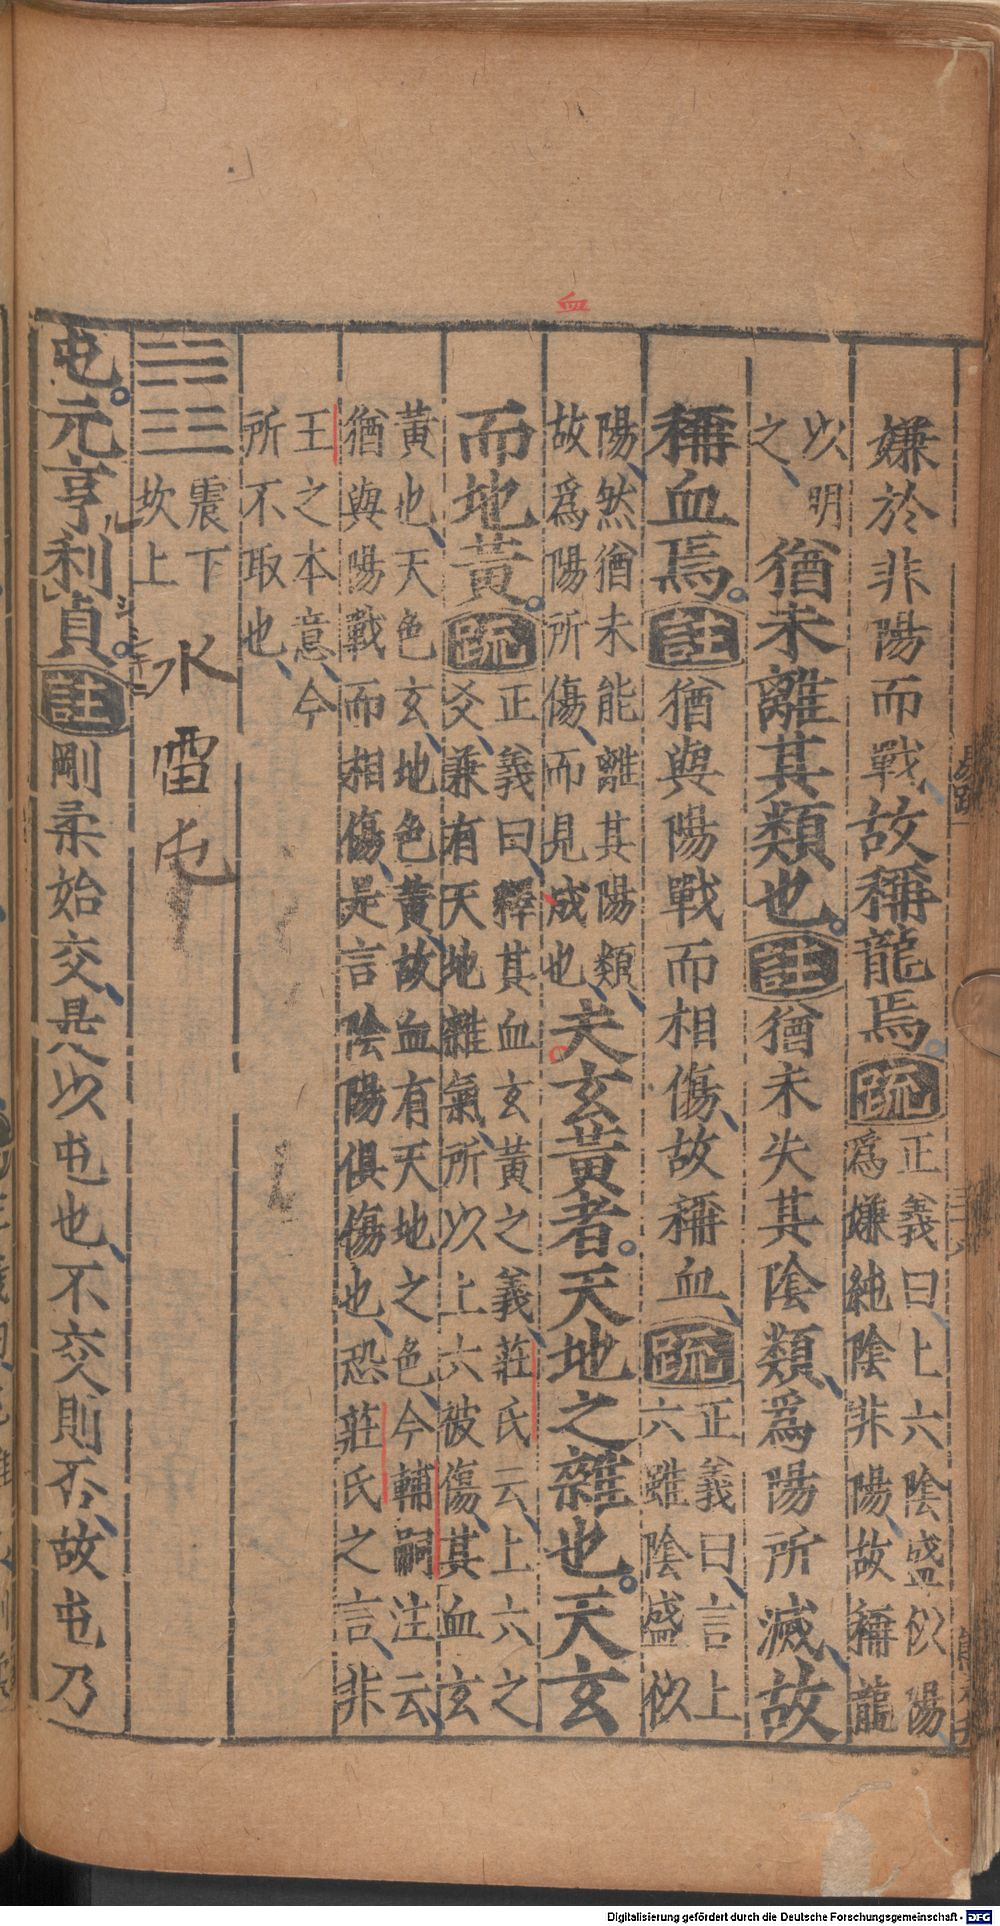 嫌於非陽而戰故稱龍焉。疏正義曰上六陰盛似陽
爲嫌純陰非陽故稱龍
以明
之猶未離其類也。註猶未失其陰類爲陽所滅故
稱血焉。註猶與陽戰而相傷故稱血疏正義曰言上
六雖陰盛似
陽然猶未能離其陽類
故爲陽所傷而見成也夫玄黃者。天地之雜也。天玄
而地黃。疏正義曰釋其血玄黃之義莊氏云上六之
爻兼有天地雜氣所以上六被傷其血玄
黃也天色玄地色黃故血有天地之色今輔嗣注云
猶與陽戰而相傷是言陰陽俱傷也恐莊氏之言非
王之本意今
所不取也
震下
坎上
水雷屯
屯。元亨利貞。註剛柔始交是以屯也不交則否故屯乃
血
易疏一
Digitalisierung gefördert durch die Deutsche Forschungsgemeinschaft - DFG